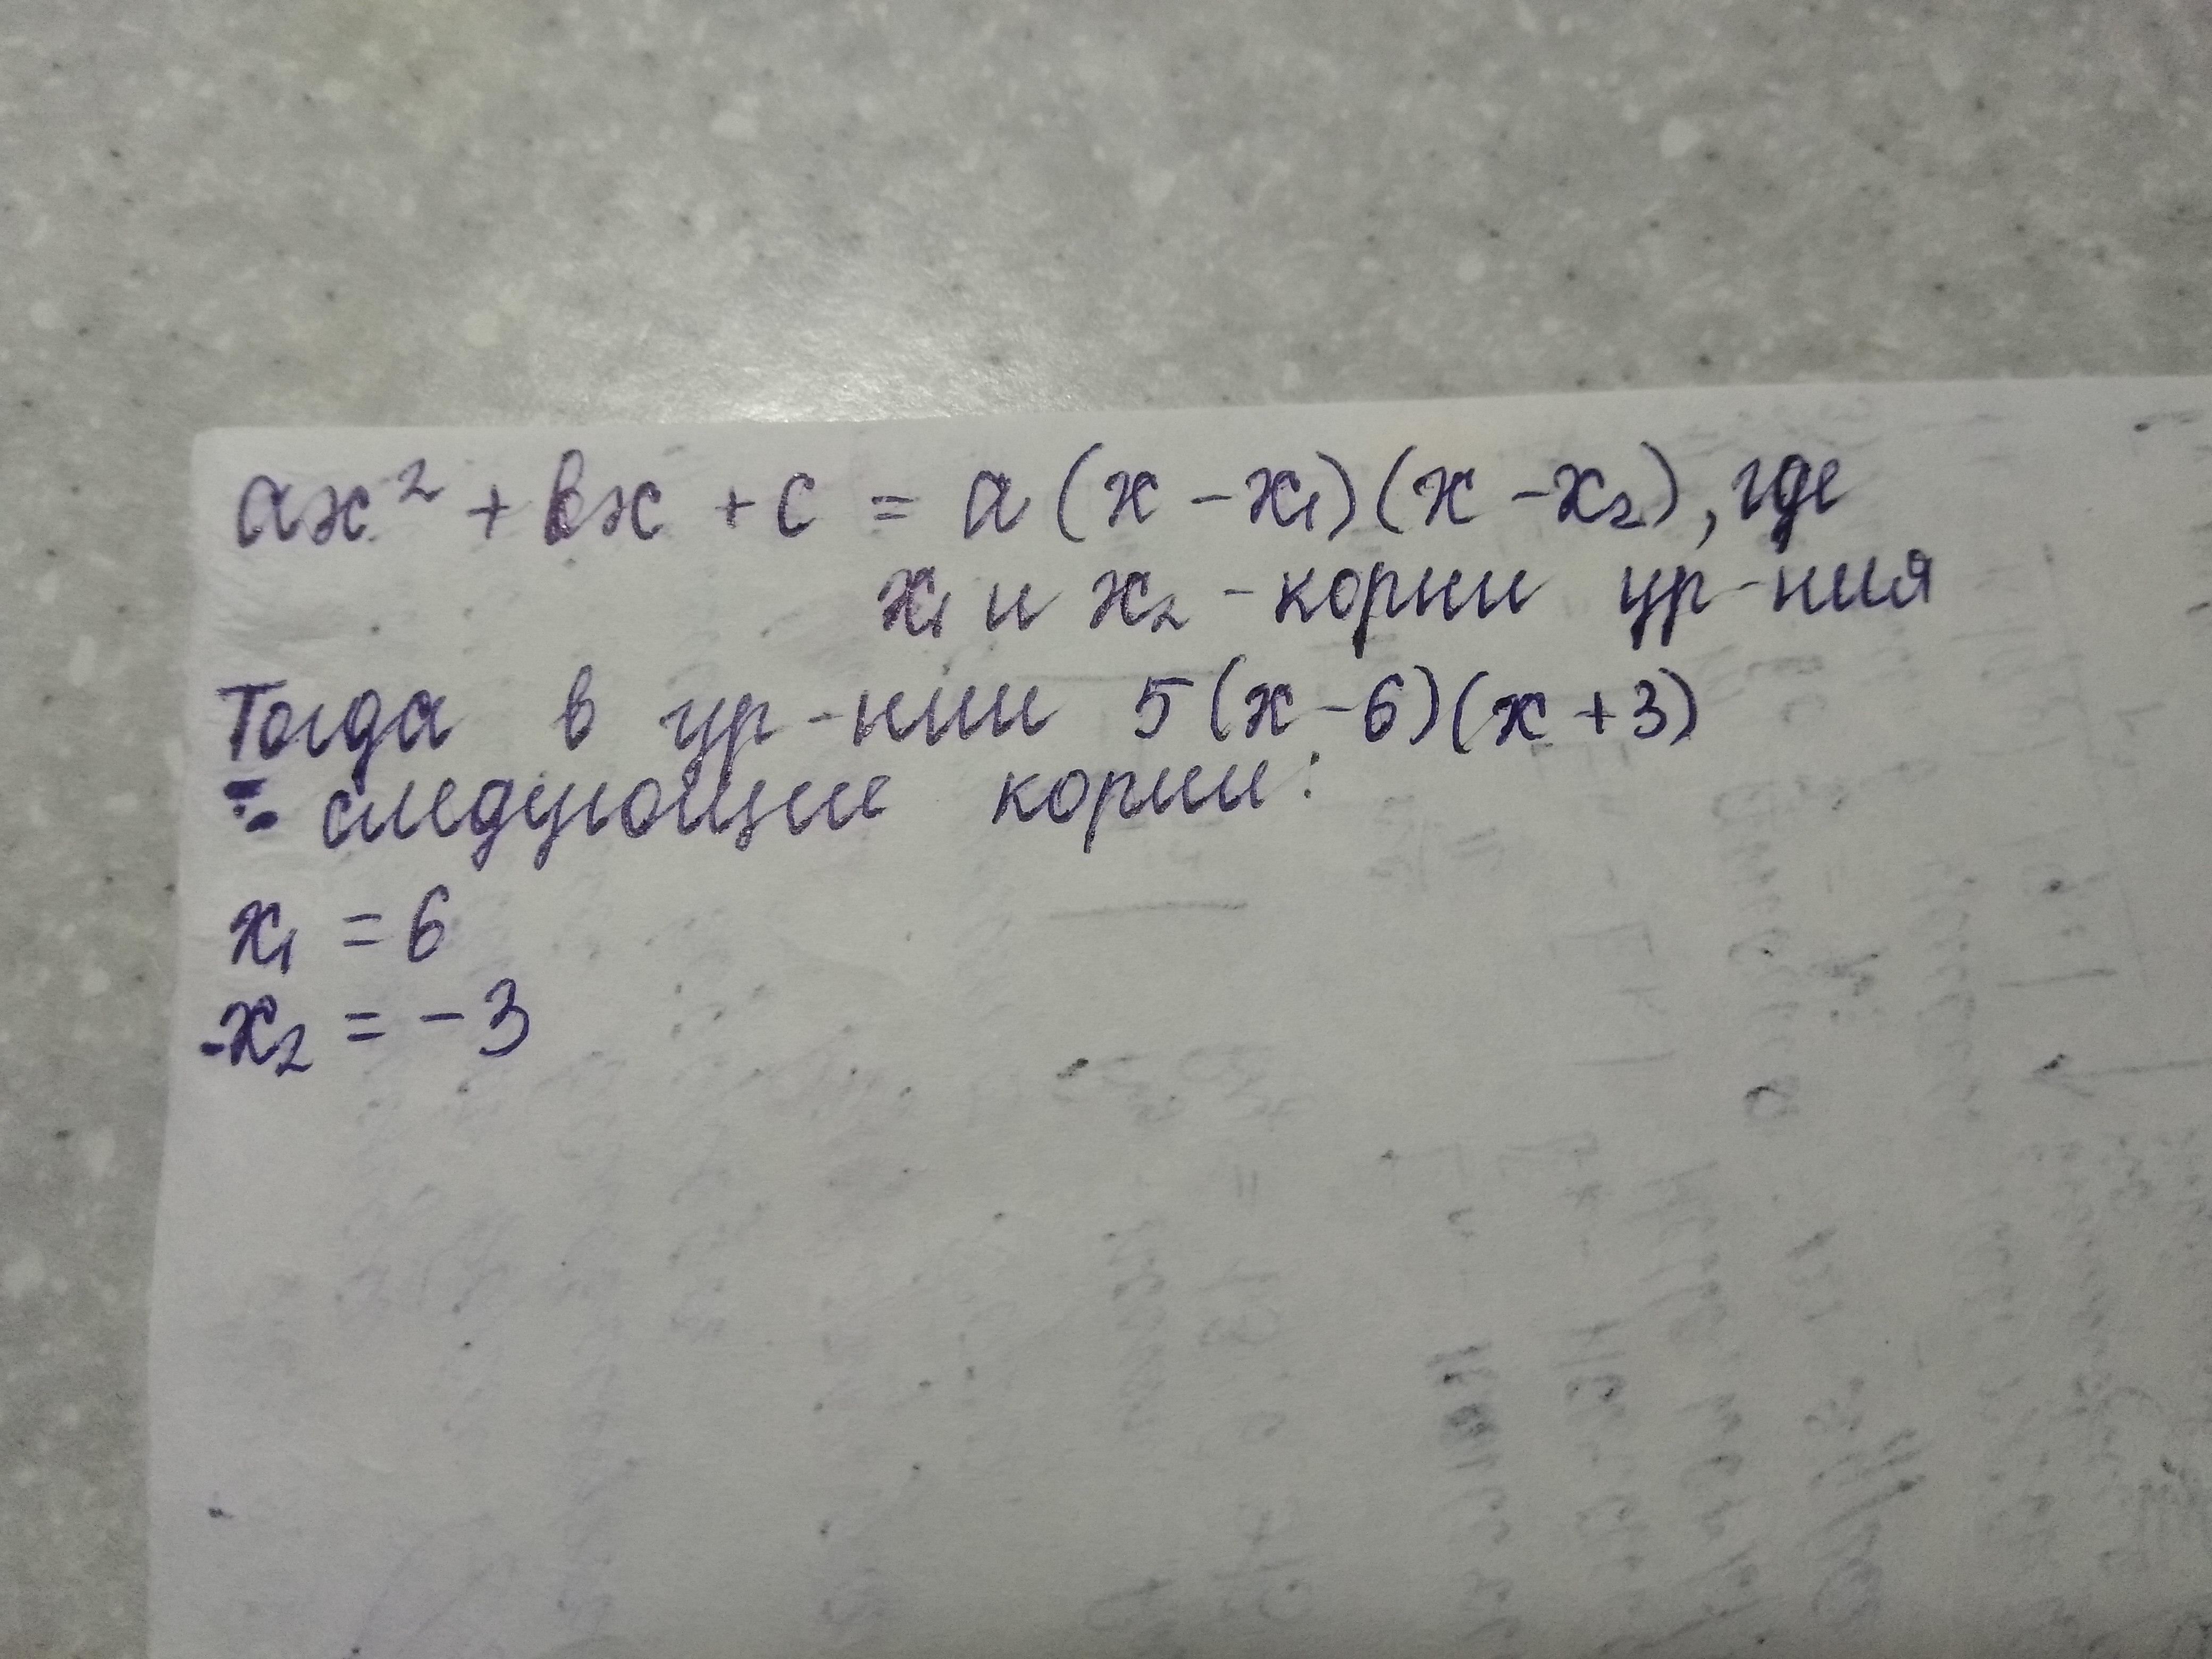 ax² + bx + c = a(x - x₁)(x - x₂), где
x₁ и x₂ - корни ур-ния
Тогда в ур-нии 5(x-6)(x+3)
- следующие корни:
x₁ = 6
x₂ = -3